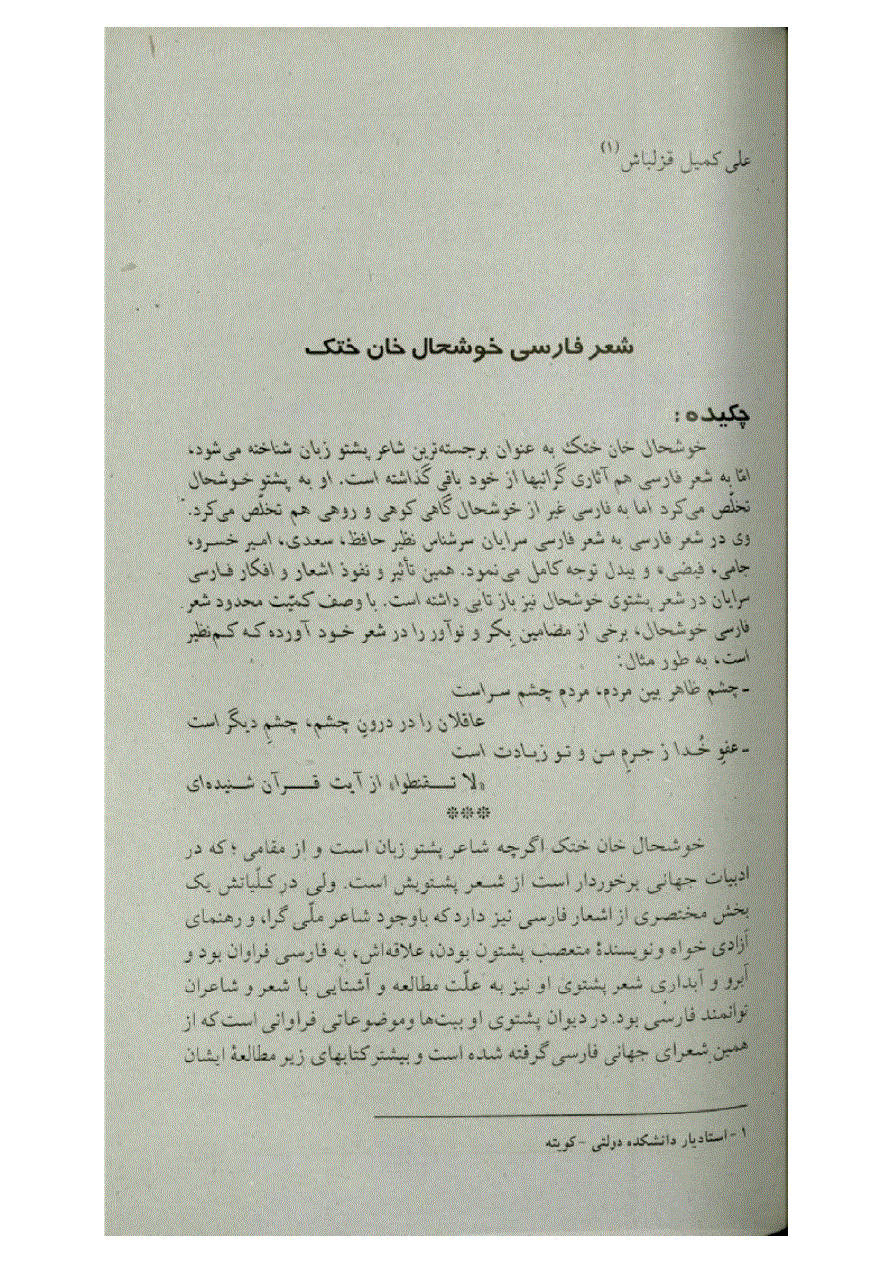 علی کمیل قزلباش(۱)
شعر فارسی خوشحال خان ختک
چکیده:
خوشحال خان ختک به عنوان برجسته‌ترین شاعر پشتو زبان شناخته می‌شود،
امّا به شعر فارسی هم آثاری گرانبها از خود باقی گذاشته است. او به پشتو خوشحال
تخلّص می‌کرد اما به فارسی غیر از خوشحال گاهی کوهی و روهی هم تخلّص می‌کرد.
وی در شعر فارسی به شعر فارسی سرایان سرشناس نظیر حافظ، سعدی، امیر خسرو،
جامی، فیضی، و بیدل توجه کامل می‌نمود. همین تأثیر و نفوذ اشعار و افکار فارسی
سرایان در شعر پشتوی خوشحال نیز باز تابی داشته است. با وصف کمیّت محدود شعر
فارسی خوشحال، برخی از مضامین بِکر و نوآور را در شعر خود آورده که کم‌نظیر
است، به طور مثال:
-چشم ظاهر بین مردم، مردم چشم سراست
عاقلان را در درونِ چشم، چشمِ دیگر است
-عفوِ خُدا ز جرمِ من و تو زیادت است
«لا تقنطوا» از آیت قرآن شنیده‌ای
***
خوشحال خان ختک اگرچه شاعر پشتو زبان است و از مقامی ؛ که در
ادبیات جهانی برخوردار است از شعر پشتویش است. ولی در کلّیاتش یک
بخش مختصری از اشعار فارسی نیز دارد که باوجود شاعر ملّی گرا، و رهنمای
آزادی خواه ونویسندهٔ متعصب پشتون بودن، علاقه‌اش، به فارسی فراوان بود و
آبرو و آبداری شعر پشتوی او نیز به علّت مطالعه و آشنایی با شعر و شاعران
توانمند فارسی بود. در دیوان پشتوی او بیت‌ها وموضوعاتی فراوانی است که از
همین شعرای جهانی فارسی گرفته شده است و بیشتر کتابهای زیر مطالعهٔ ایشان
۱- استادیار دانشکده دولتی - کویته